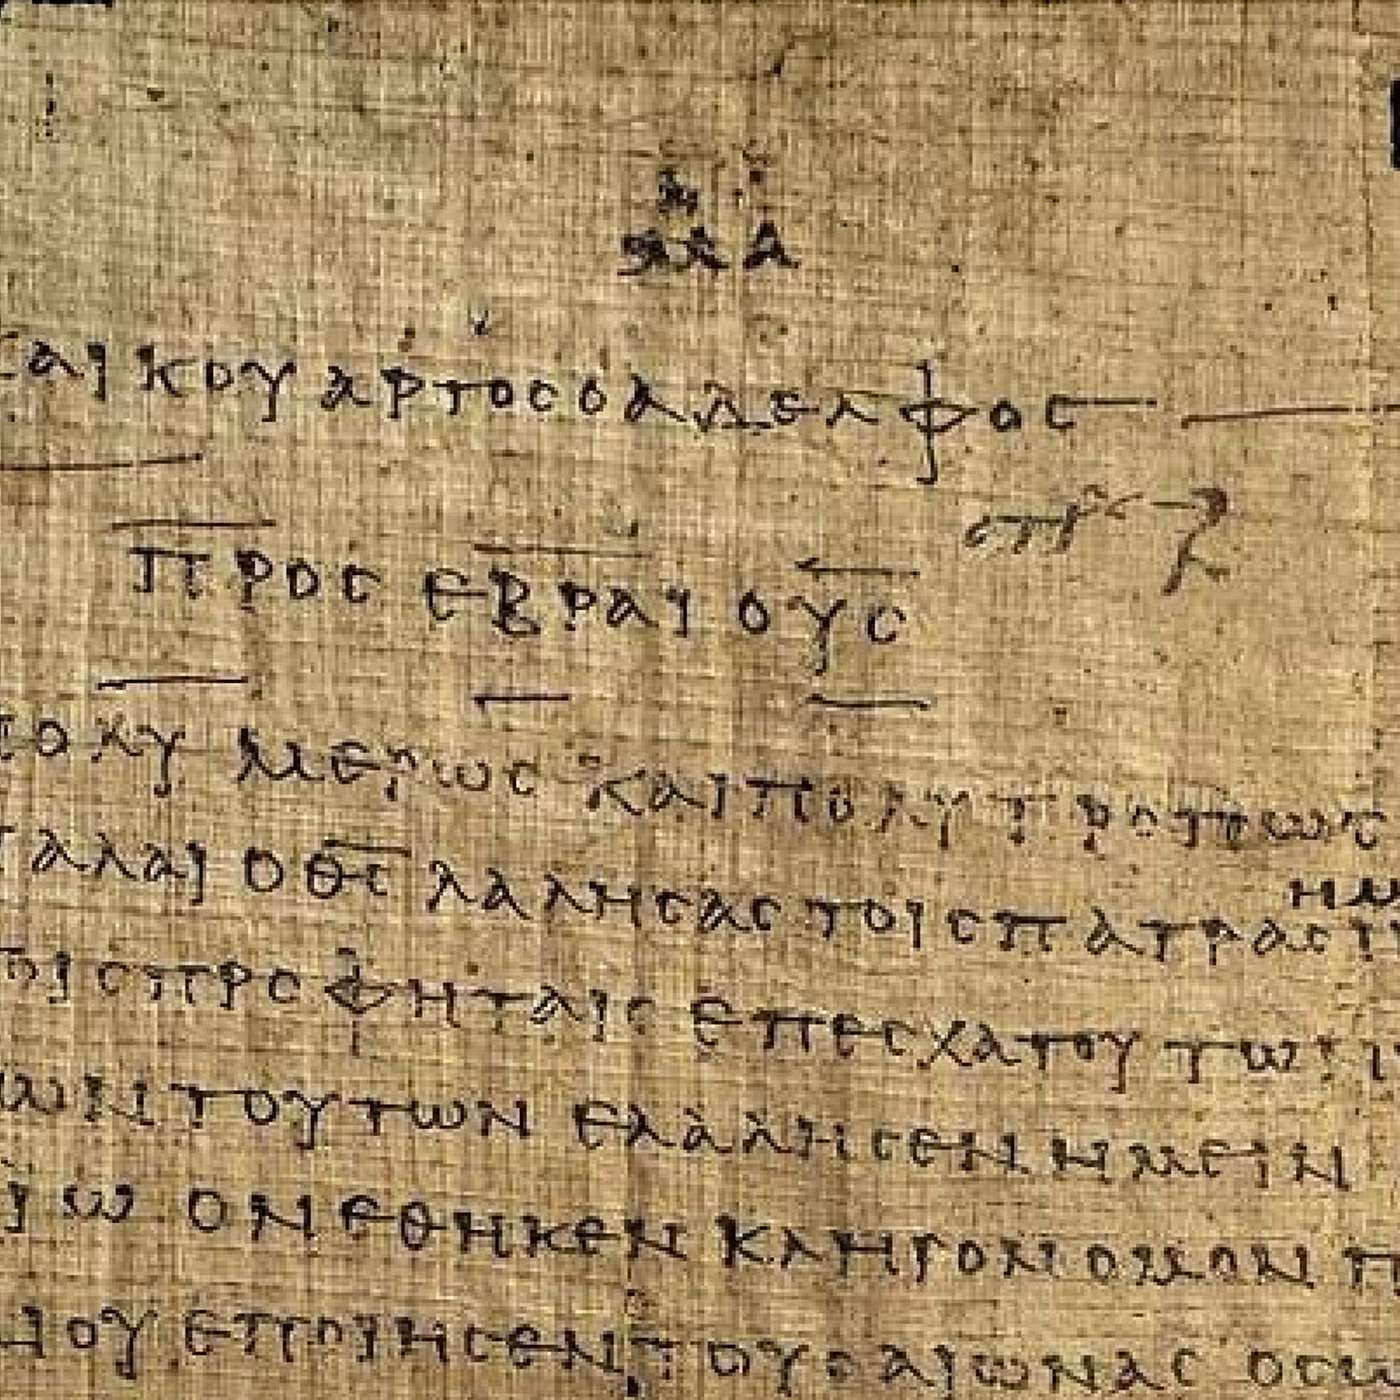 ΜΑ
ΚΑΙ ΚΟΥΑΡΤΟΣ Ο ΑΔΕΛΦΟΣ
ΠΡΟΣ ΕΒΡΑΙΟΥΣ
ΟΛΥΜΕΡΩΣ ΚΑΙ ΠΟΛΥΤΡΟΠΩΣ
ΑΛΑΙ Ο Θ̅Σ̅ ΛΑΛΗΣΑΣ ΤΟΙΣ ΠΑΤΡΑΣΙΝ ΗΜ
ΟΙΣ ΠΡΟΦΗΤΑΙΣ ΕΠ ΕΣΧΑΤΟΥ ΤΩΝ
ΩΝ ΤΟΥΤΩΝ ΕΛΑΛΗΣΕΝ ΗΜΕΙΝ
ΙΩ ΟΝ ΕΘΗΚΕΝ ΚΛΗΡΟΝΟΜΟΝ Π
ΟΥ ΕΠΟΙΗΣΕΝ ΤΟΥΣ ΑΙΩΝΑΣ ΟΣ Ω